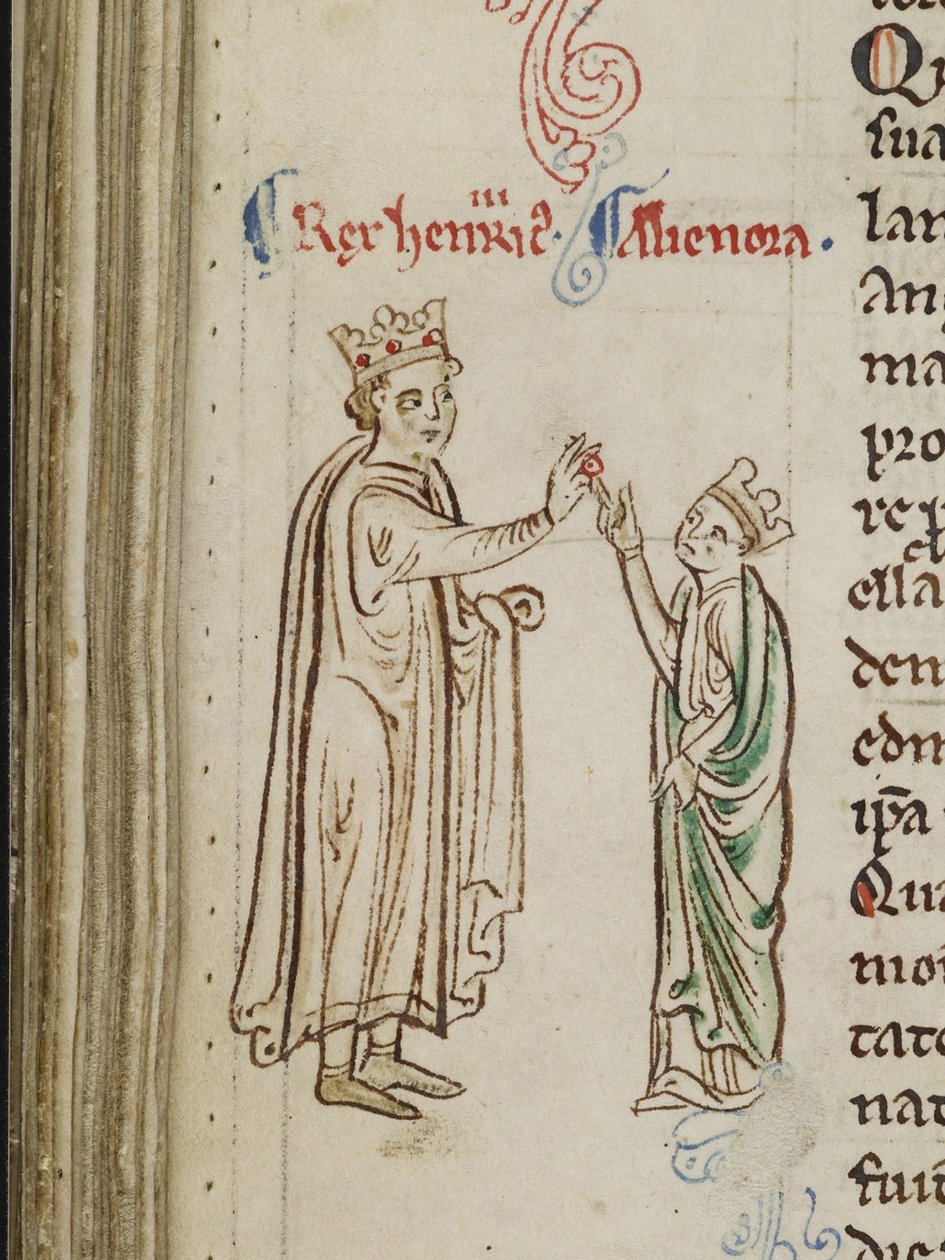 Rex henric⁹ iii · Alienora ·
Qu
sua
lan
An
ma
pro
re
ella
den
edm
ip̄a
Qui
mon
tato
nat
fuit
die